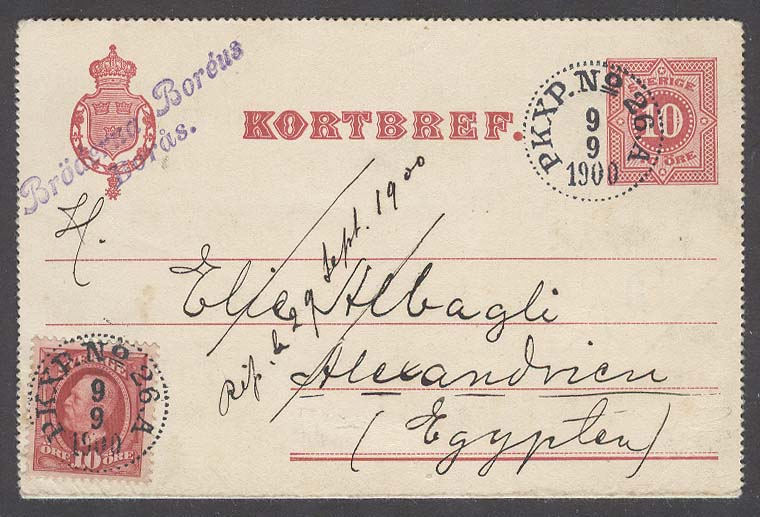 Bröderna Boréus
Borås.
KORTBREF.
SVERIGE
10
ÖRE
PKXP. No 26 A
9
9
1900
H.
Elie Albagli
Alexandrien
(Egypten)
Rép. le 29 Sept. 1900
PKXP. No 26 A
9
9
1900
ÖRE 10 ÖRE